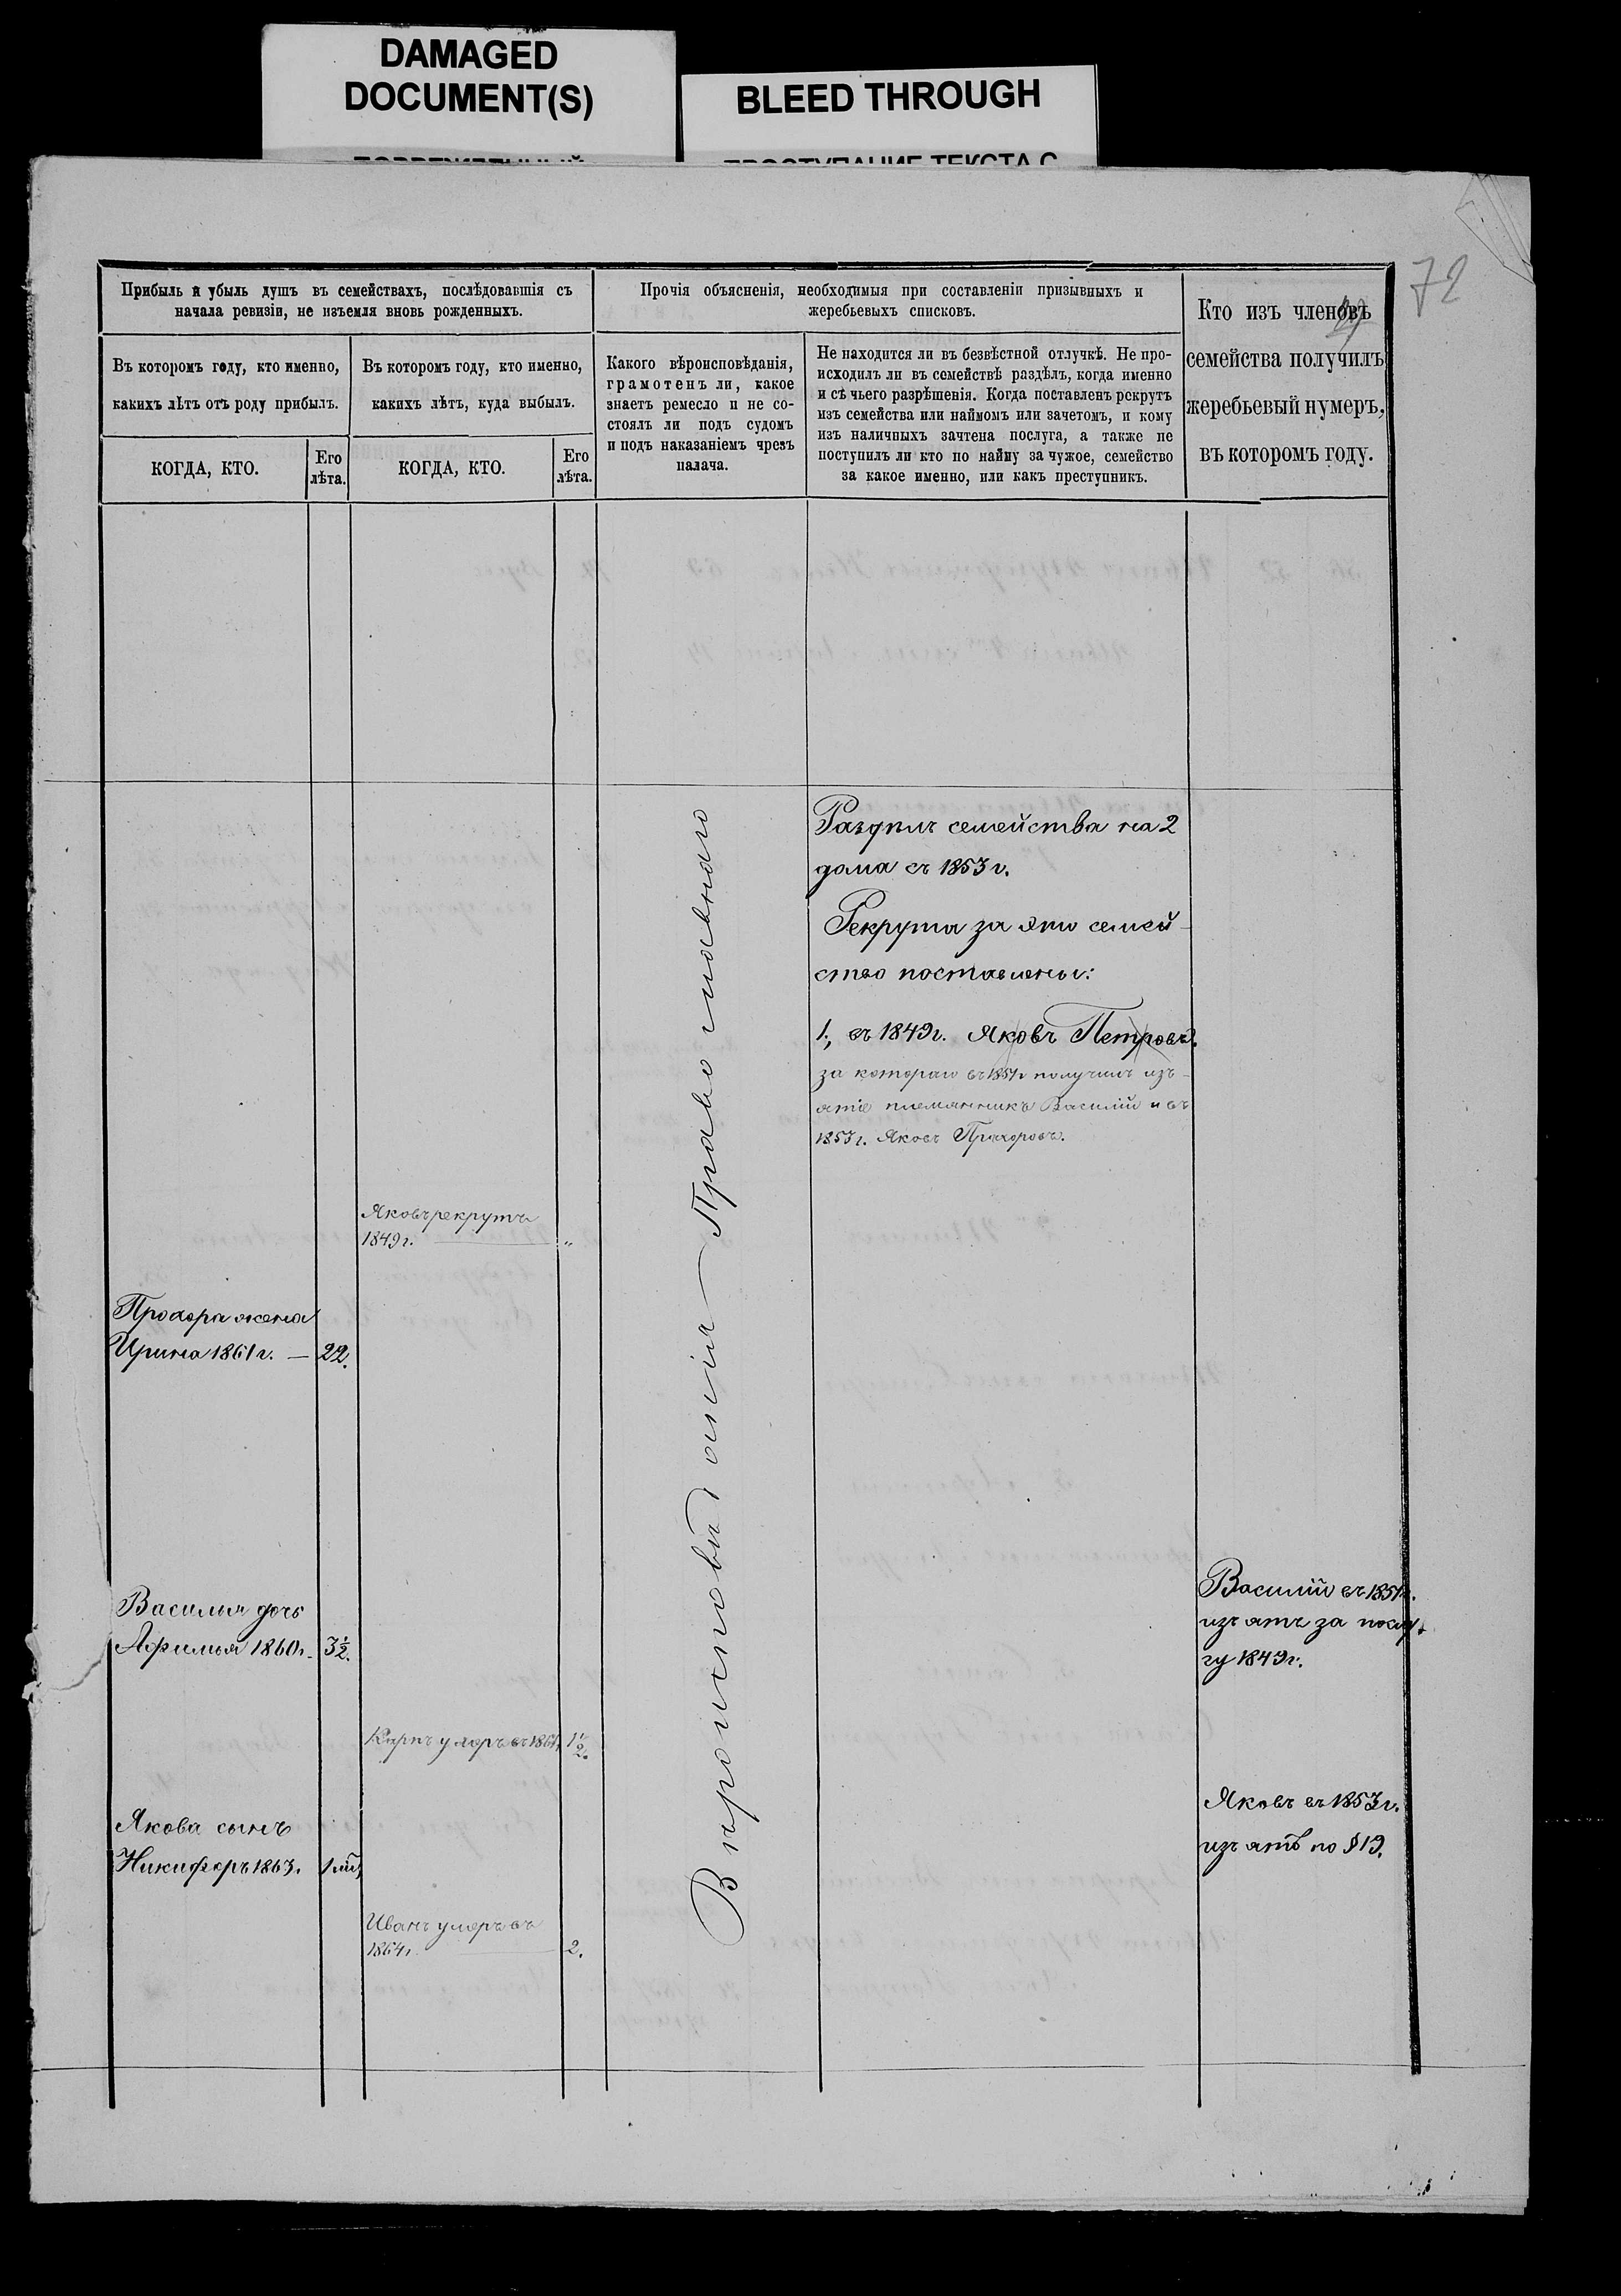 DAMAGED
DOCUMENT(S)
BLEED THROUGH
ПРОСТУПАНИЕ ТЕКСТА С
72
Прибыль и убыль душъ въ семействахъ, послѣдовавшія съ
начала ревизіи, не изъемля вновь рожденныхъ.
Прочія объясненія, необходимыя при составленіи призывныхъ и
жеребьевыхъ списковъ.
Кто изъ членовъ
семейства получилъ
жеребьевый нумеръ,
въ которомъ году.
Въ которомъ году, кто именно,
какихъ лѣтъ отъ роду прибылъ.
Въ которомъ году, кто именно,
какихъ лѣтъ, куда выбылъ.
Какого вѣроисповѣданія,
грамотенъ ли, какое
знаетъ ремесло и не со-
стоялъ ли подъ судомъ
и подъ наказаніемъ чрезъ
палача.
Не находится ли въ безвѣстной отлучкѣ. Не про-
исходилъ ли въ семействѣ раздѣлъ, когда именно
и съ чьего разрѣшенія. Когда поставленъ рекрутъ
изъ семейства или наймомъ или зачетомъ, и кому
изъ наличныхъ зачтена послуга, а также не
поступилъ ли кто по найму за чужое, семейство
за какое именно, или какъ преступникъ.
КОГДА, КТО.
Его
лѣта.
КОГДА, КТО.
Его
лѣта.
Раздѣлъ семейства на 2
дома съ 1853 г.
Рекрута за это семей-
ство поставлены:
1, въ 1849 г. Яковъ Петровъ.
за котораго въ 1851 г получилъ изъ-
ятіе племянникъ Василій и въ
1853 г. Яковъ Прохоровъ.
Вѣроисповѣданія Православнаго
Яковъ рекрутъ
1849 г. "
Прохора жена
Ирина 1861 г. — 22.
Василья дочь
Афимья 1860 г. 3½.
Василій въ 1851 г.
изъятъ за послу-
гу 1849 г.
Карпъ умеръ въ 1861 1½.
Якова сынъ
Никифоръ 1863.
Яковъ въ 1853 г.
изъятъ по § 19.
Иванъ умеръ въ
1864 г. 2.